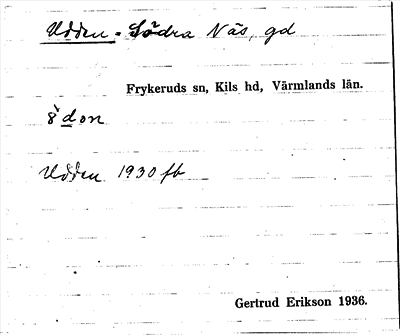 Udden - Södra Näs, gd
Frykeruds sn, Kils hd, Värmlands län.
ö̀don
Udden 1930 fb
Gertrud Erikson 1936.